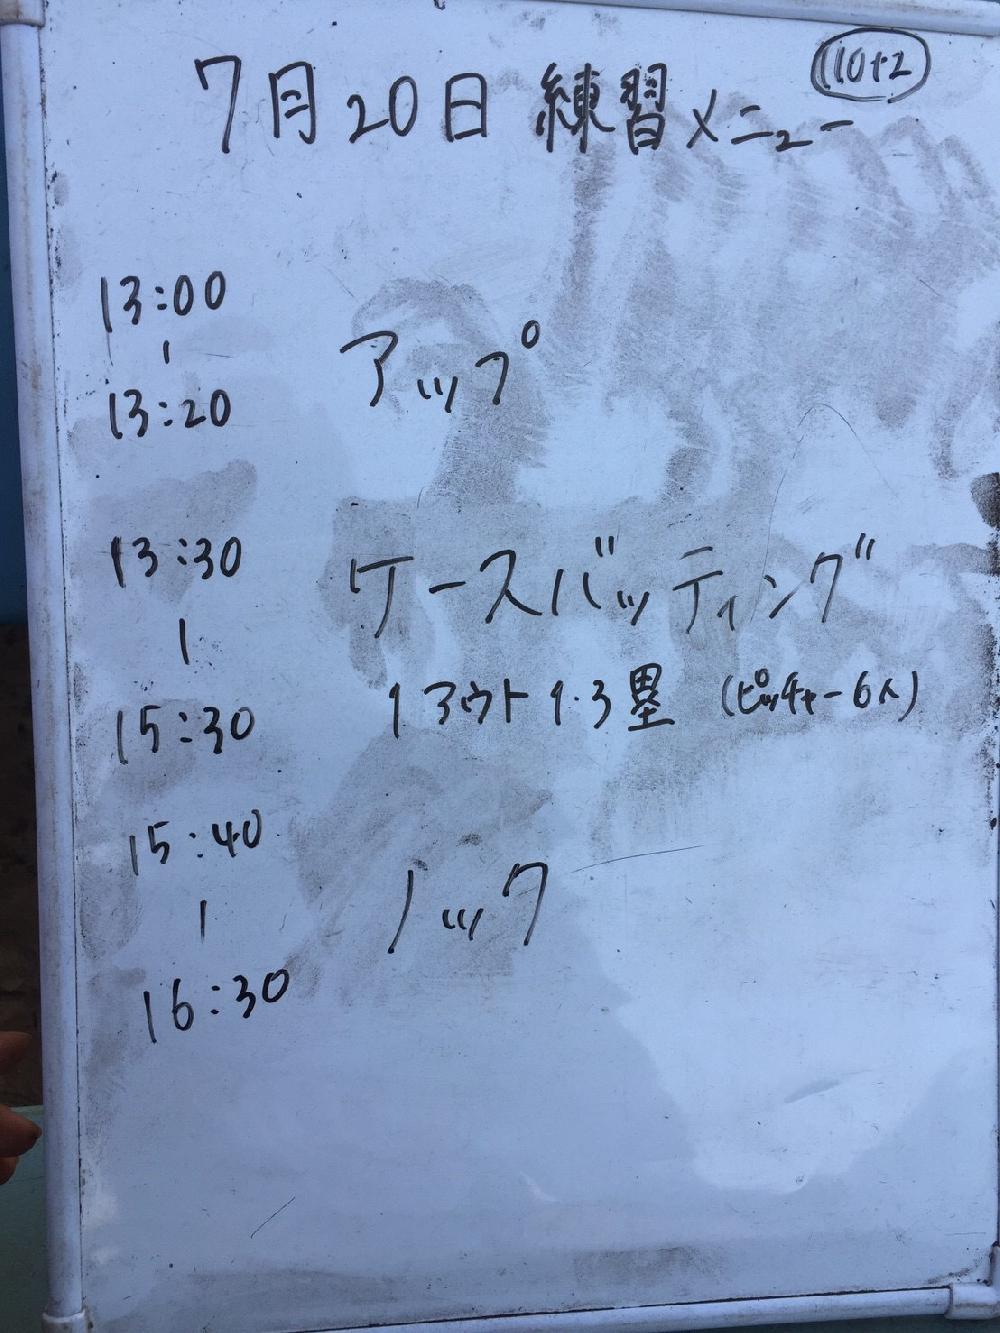 7月20日 練習メニュー
10+2
13:00
|
13:20
アップ
13:30
|
15:30
ケースバッティング
1アウト1・3塁 (ピッチャー6人)
15:40
|
16:30
ノック